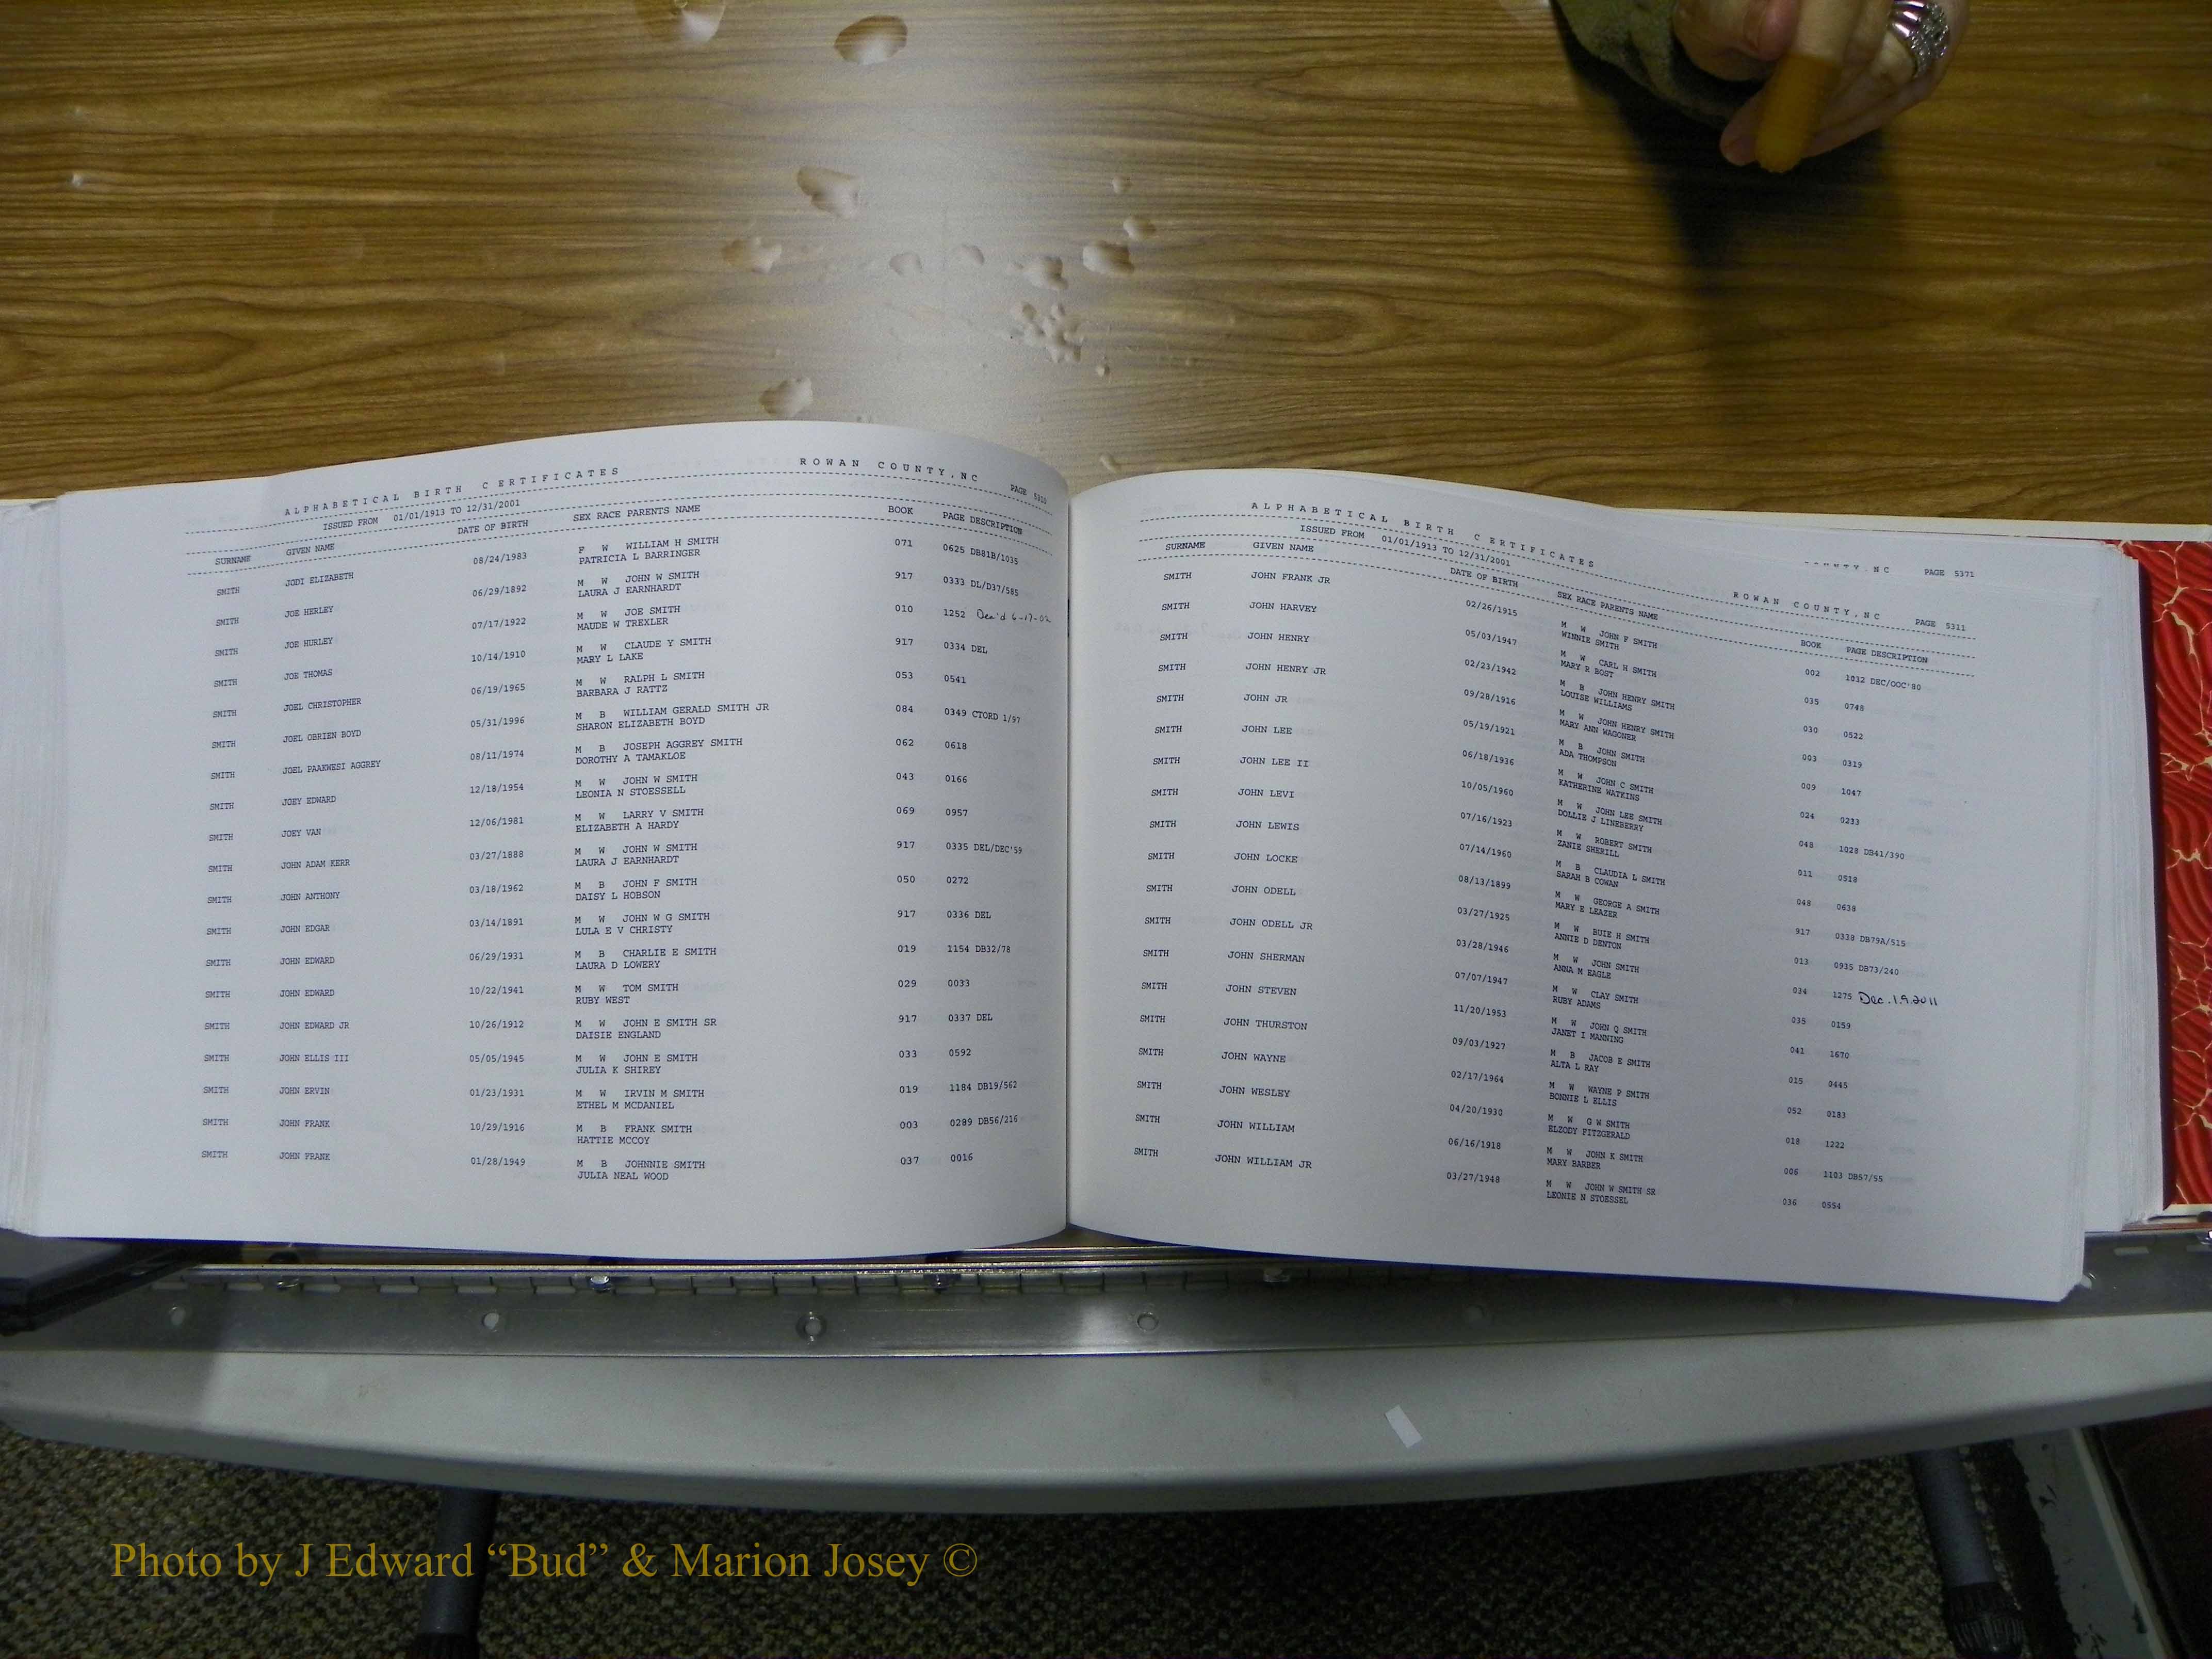 ALPHABETICAL BIRTH CERTIFICATES ROWAN COUNTY,NC PAGE 5310
ISSUED FROM 01/01/1913 TO 12/31/2001
SURNAME GIVEN NAME DATE OF BIRTH SEX RACE PARENTS NAME BOOK PAGE DESCRIPTION
SMITH JODI ELIZABETH 08/24/1983 F W WILLIAM H SMITH 071 0625 DB81B/1035
PATRICIA L BARRINGER
SMITH JOE HERLEY 06/29/1892 M W JOHN W SMITH 917 0333 DL/D37/585
LAURA J EARNHARDT
SMITH JOE HURLEY 07/17/1922 M W JOE SMITH 010 1252 Dec'd 6-17-02
MAUDE W TREXLER
SMITH JOE THOMAS 10/14/1910 M W CLAUDE Y SMITH 917 0334 DEL
MARY L LAKE
SMITH JOEL CHRISTOPHER 06/19/1965 M W RALPH L SMITH 053 0541
BARBARA J RATTZ
SMITH JOEL OBRIEN BOYD 05/31/1996 M B WILLIAM GERALD SMITH JR 084 0349 CTORD 1/97
SHARON ELIZABETH BOYD
SMITH JOEL PAAKWESI AGGREY 08/11/1974 M B JOSEPH AGGREY SMITH 062 0618
DOROTHY A TAMAKLOE
SMITH JOEY EDWARD 12/18/1954 M W JOHN W SMITH 043 0166
LEONIA N STOESSELL
SMITH JOEY VAN 12/06/1981 M W LARRY V SMITH 069 0957
ELIZABETH A HARDY
SMITH JOHN ADAM KERR 03/27/1888 M W JOHN W SMITH 917 0335 DEL/DEC'59
LAURA J EARNHARDT
SMITH JOHN ANTHONY 03/18/1962 M B JOHN F SMITH 050 0272
DAISY L HOBSON
SMITH JOHN EDGAR 03/14/1891 M W JOHN W G SMITH 917 0336 DEL
LULA E V CHRISTY
SMITH JOHN EDWARD 06/29/1931 M B CHARLIE E SMITH 019 1154 DB32/78
LAURA D LOWERY
SMITH JOHN EDWARD 10/22/1941 M W TOM SMITH 029 0033
RUBY WEST
SMITH JOHN EDWARD JR 10/26/1912 M W JOHN E SMITH SR 917 0337 DEL
DAISIE ENGLAND
SMITH JOHN ELLIS III 05/05/1945 M W JOHN E SMITH 033 0592
JULIA K SHIREY
SMITH JOHN ERVIN 01/23/1931 M W IRVIN M SMITH 019 1184 DB19/562
ETHEL M MCDANIEL
SMITH JOHN FRANK 10/29/1916 M B FRANK SMITH 003 0289 DB56/216
HATTIE MCCOY
SMITH JOHN FRANK 01/28/1949 M B JOHNNIE SMITH 037 0016
JULIA NEAL WOOD
NC PAGE 5371
ALPHABETICAL BIRTH CERTIFICATES ROWAN COUNTY,NC PAGE 5311
ISSUED FROM 01/01/1913 TO 12/31/2001
SURNAME GIVEN NAME DATE OF BIRTH SEX RACE PARENTS NAME BOOK PAGE DESCRIPTION
SMITH JOHN FRANK JR 02/26/1915 M W JOHN F SMITH 002 1012 DEC/OOC'80
WINNIE SMITH
SMITH JOHN HARVEY 05/03/1947 M W CARL H SMITH 035 0748
MARY R BOST
SMITH JOHN HENRY 02/23/1942 M B JOHN HENRY SMITH 030 0522
LOUISE WILLIAMS
SMITH JOHN HENRY JR 09/28/1916 M W JOHN HENRY SMITH 003 0319
MARY ANN WAGONER
SMITH JOHN JR 05/19/1921 M B JOHN SMITH 009 1047
ADA THOMPSON
SMITH JOHN LEE 06/18/1936 M W JOHN C SMITH 024 0233
KATHERINE WATKINS
SMITH JOHN LEE II 10/05/1960 M W JOHN LEE SMITH 048 1028 DB41/390
DOLLIE J LINEBERRY
SMITH JOHN LEVI 07/16/1923 M W ROBERT SMITH 011 0518
ZANIE SHERILL
SMITH JOHN LEWIS 07/14/1960 M B CLAUDIA L SMITH 048 0638
SARAH B COWAN
SMITH JOHN LOCKE 08/13/1899 M W GEORGE A SMITH 917 0338 DB79A/515
MARY E LEAZER
SMITH JOHN ODELL 03/27/1925 M W BUIE H SMITH 013 0935 DB73/240
ANNIE D DENTON
SMITH JOHN ODELL JR 03/28/1946 M W JOHN SMITH 034 1275 Dec.1.9.2011
ANNA M EAGLE
SMITH JOHN SHERMAN 07/07/1947 M W CLAY SMITH 035 0159
RUBY ADAMS
SMITH JOHN STEVEN 11/20/1953 M W JOHN Q SMITH 041 1670
JANET I MANNING
SMITH JOHN THURSTON 09/03/1927 M B JACOB E SMITH 015 0445
ALTA L RAY
SMITH JOHN WAYNE 02/17/1964 M W WAYNE P SMITH 052 0183
BONNIE L ELLIS
SMITH JOHN WESLEY 04/20/1930 M W G W SMITH 018 1222
ELZODY FITZGERALD
SMITH JOHN WILLIAM 06/16/1918 M W JOHN K SMITH 006 1103 DB57/55
MARY BARBER
SMITH JOHN WILLIAM JR 03/27/1948 M W JOHN W SMITH SR 036 0554
LEONIE N STOESSEL
Photo by J Edward “Bud” & Marion Josey ©